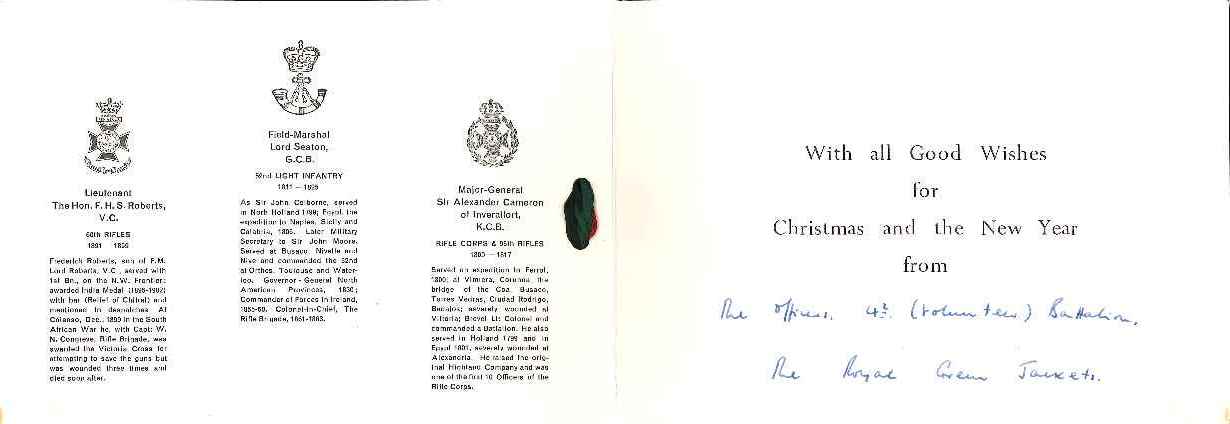 Lieutenant
The Hon. F. H. S. Roberts,
V.C.
60th RIFLES
1891 — 1899
Frederick Roberts, son of F.M.
Lord Roberts, V.C., served with
1st Bn., on the N.W. Frontier:
awarded India Medal (1895-1902)
with bar (Relief of Chitral) and
mentioned in despatches. At
Colenso, Dec., 1899 in the South
African War he, with Capt: W.
N. Congreve, Rifle Brigade, was
awarded the Victoria Cross for
attempting to save the guns but
was wounded three times and
died soon after.
Field-Marshal
Lord Seaton,
G.C.B.
52nd LIGHT INFANTRY
As Sir John Colborne, served
in North Holland 1799; Egypt, the
expedition to Naples, Sicily and
Calabria, 1806. Later Military
Secretary to Sir John Moore.
Served at Busaco, Nivelle and
Nive and commanded the 52nd
at Orthes, Toulouse and Water-
loo. Governor-General North
American Provinces, 1838;
Commander of Forces in Ireland,
1855-60. Colonel-in-Chief, The
Rifle Brigade, 1861-1863.
Major-General
Sir Alexander Cameron
of Inverailort,
K.C.B.
RIFLE CORPS & 95th RIFLES
1800 — 1817
Served on expedition to Ferrol,
1800; at Vimiera, Corunna, the
bridge of the Coa, Busaco,
Torres Vedras, Ciudad Rodrigo,
Badajos; severely wounded at
Vittoria; Brevet Lt: Colonel and
commanded a Battalion. He also
served in Holland 1799 and in
Egypt 1801, severely wounded at
Alexandria. He raised the orig-
inal Highland Company and was
one of the first 10 Officers of the
Rifle Corps.
With all Good Wishes
for
Christmas and the New Year
from
The Officers. 4th (Volunteer) Battalion,
The Royal Green Jackets.